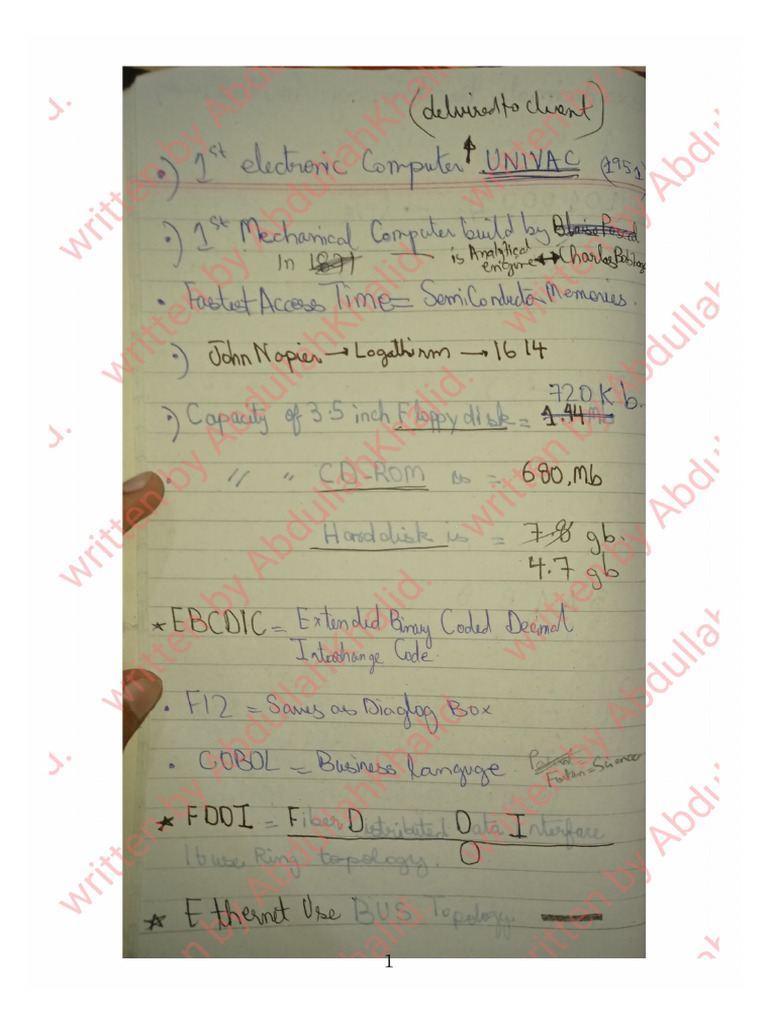 (delvired to client)
•) 1st electronic Computer ↑ UNIVAC (1951)
•) 1st Mechanical Computer build by
In — is Analytical engine ↔ Charles Babbage
• Fastest Access Time = SemiConductor Memories.
•) John Napier → Logathirm → 1614
720 K b.
•) Capacity of 3.5 inch Floppy disk = 1.44 Mb
• " " CD-ROM is = 680, Mb
Hard disk is = 7.8 gb.
4.7 gb
* EBCDIC = Extended Binary Coded Decimal
Interchange Code.
• F12 = Saves as Diaglog Box
• COBOL = Business languge.
= Science
* FDDI = Fiber Distributed Data Interface
It use Ring topology.
* Ethernet Use BUS Topology.
written by AbdullahKhalid.
1